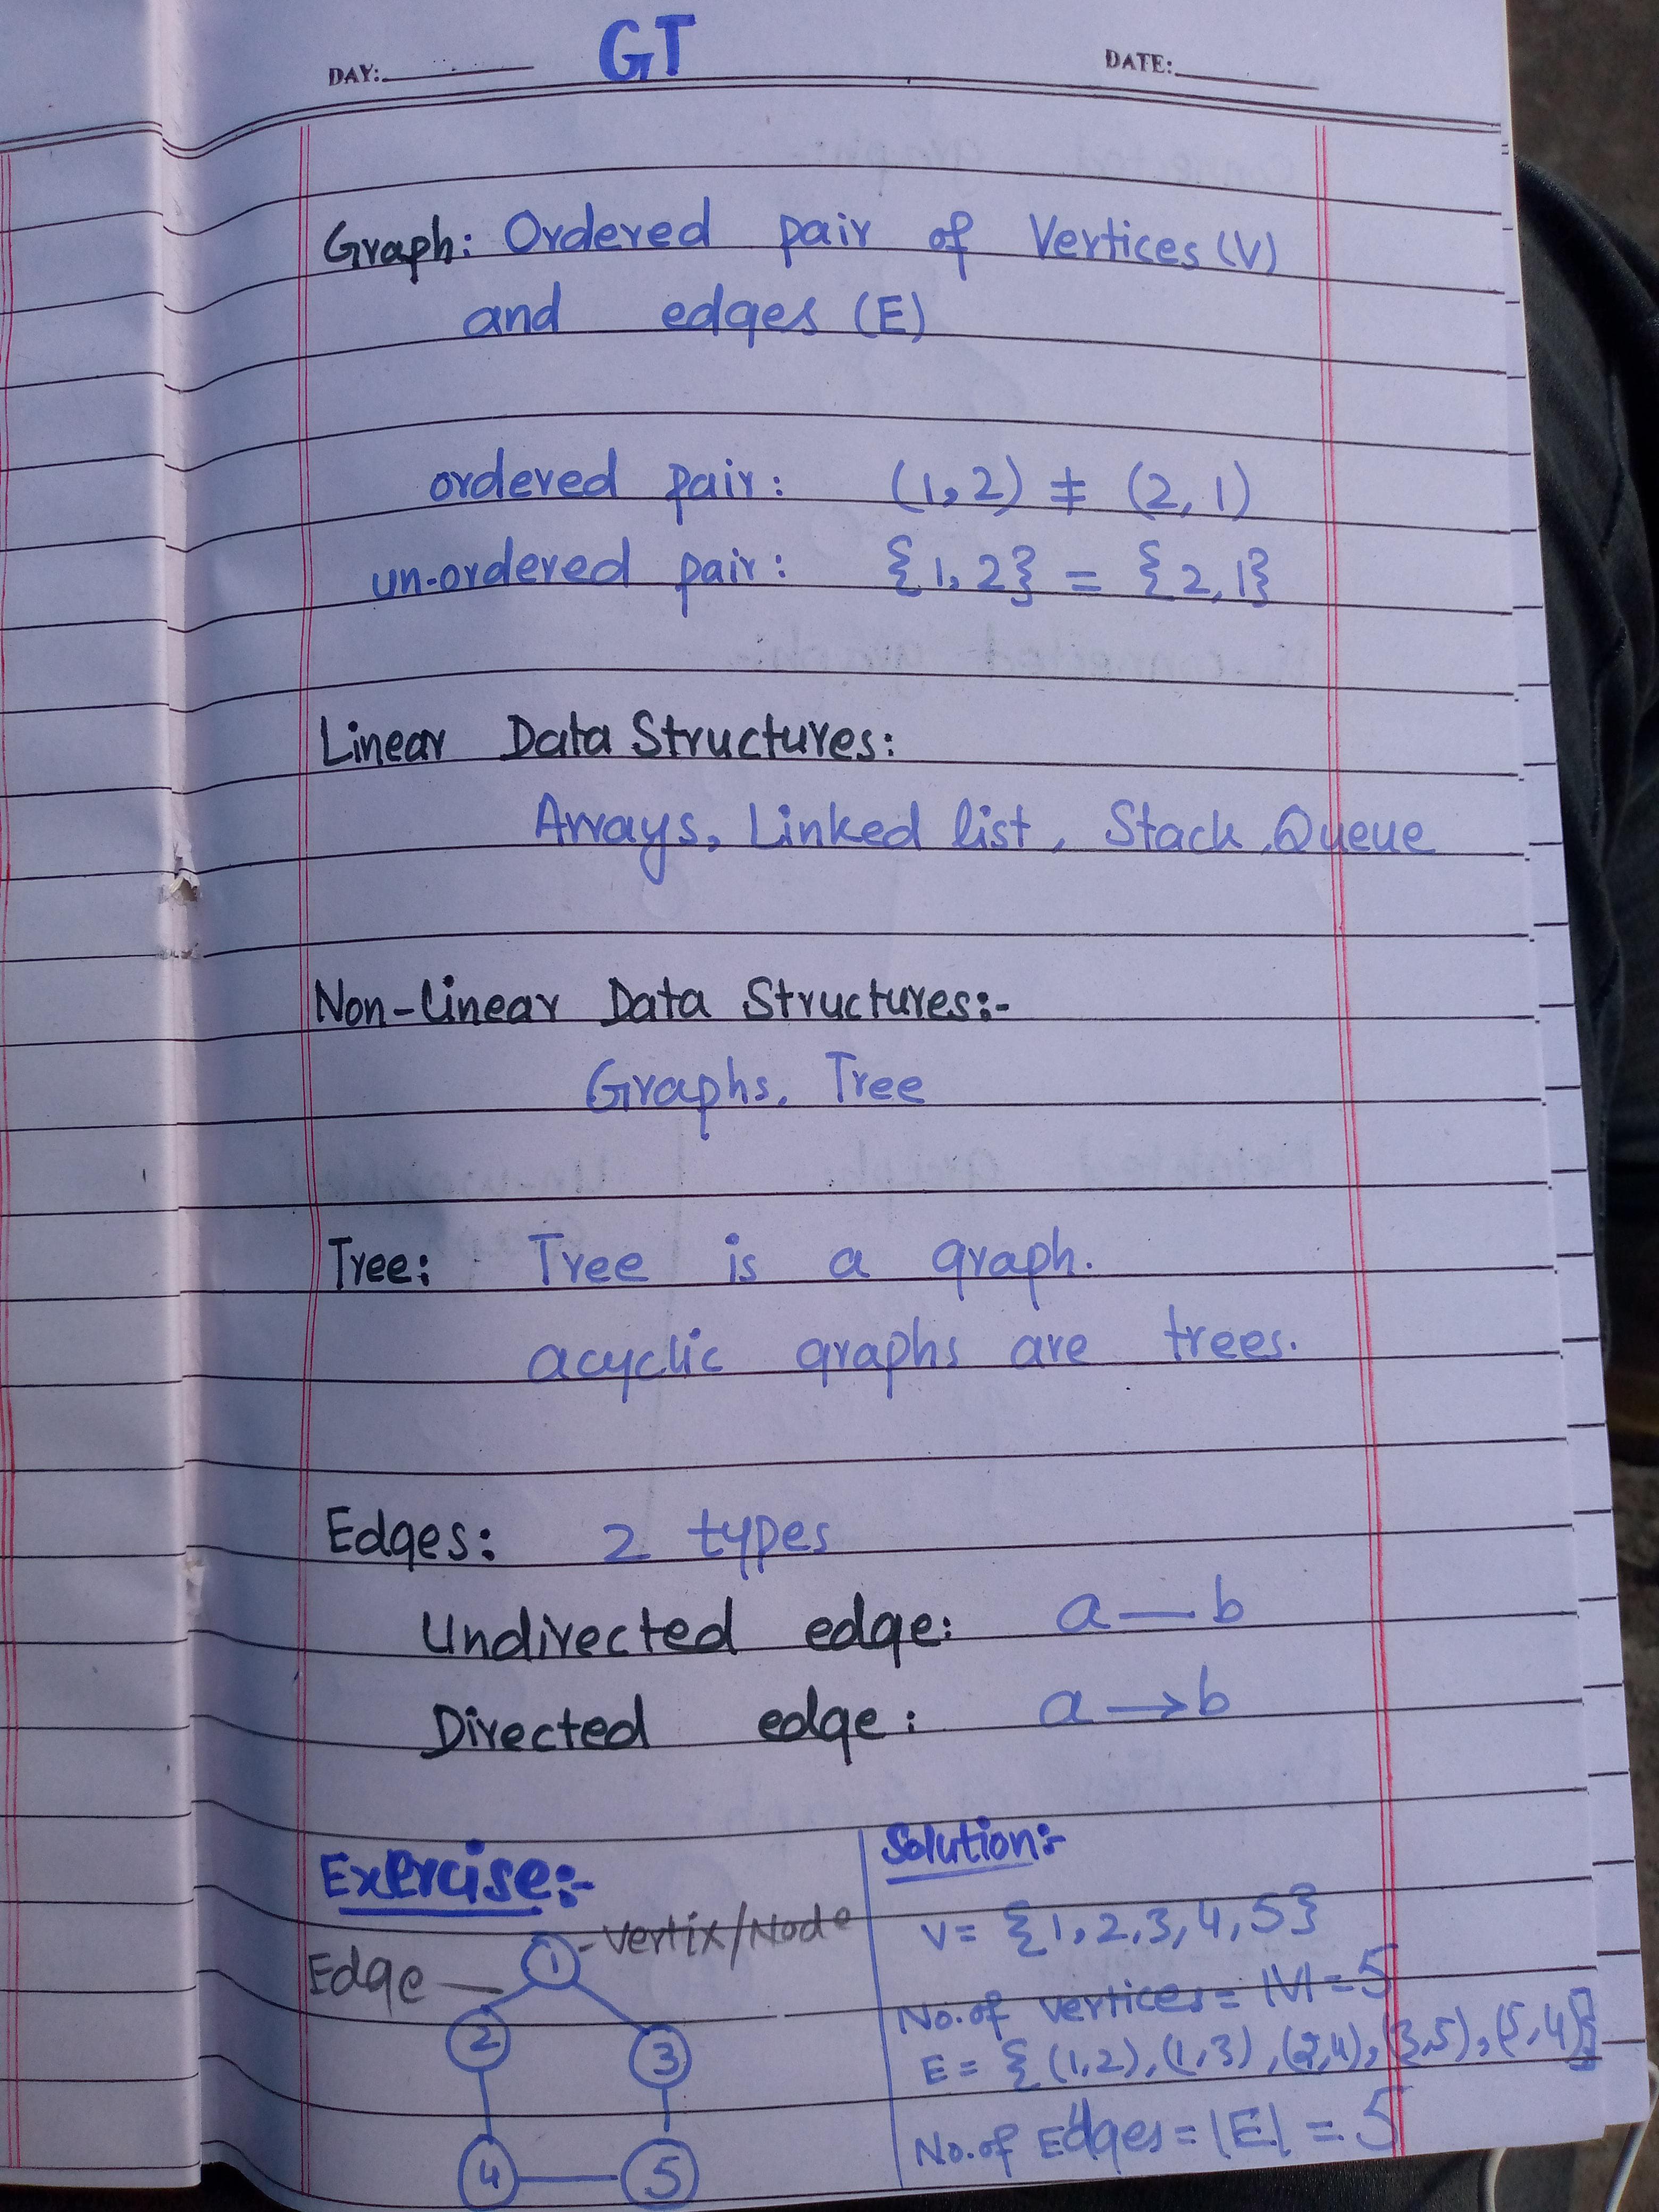 GT
DAY:
DATE:
Graph: Ordered pair of Vertices (V)
and edges (E)
ordered pair: (1,2) ≠ (2,1)
un-ordered pair: {1,2} = {2,1}
Linear Data Structures:
Arrays, Linked list, Stack, Queue
Non-Linear Data Structures:-
Graphs, Tree
Tree: Tree is a graph.
acyclic graphs are trees.
Edges: 2 types
Undirected edge: a — b
Directed edge: a → b
Exercise:-
Edge
Vertix/Node
1
2
3
4
5
Solution:-
V = {1,2,3,4,5}
No. of vertices = |V| = 5
E = {(1,2), (1,3), (2,4), (3,5), (5,4)}
No. of Edges = |E| = 5